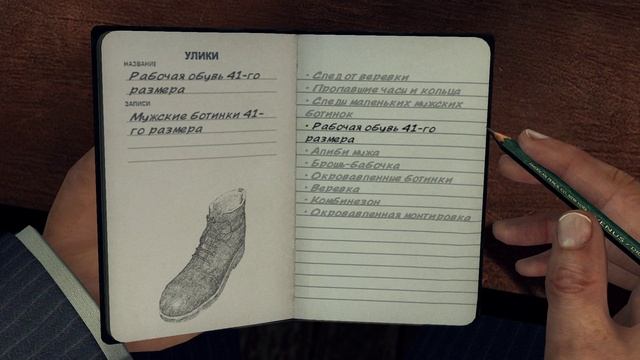 УЛИКИ
НАЗВАНИЕ
Рабочая обувь 41-го
размера
ЗАПИСИ
Мужские ботинки 41-
го размера
• След от веревки
• Пропавшие часы и кольца
• Следы маленьких мужских
ботинок
• Рабочая обувь 41-го
размера
• Алиби мужа
• Брошь-бабочка
• Окровавленные ботинки
• Веревка
• Комбинезон
• Окровавленная монтировка
VENUS